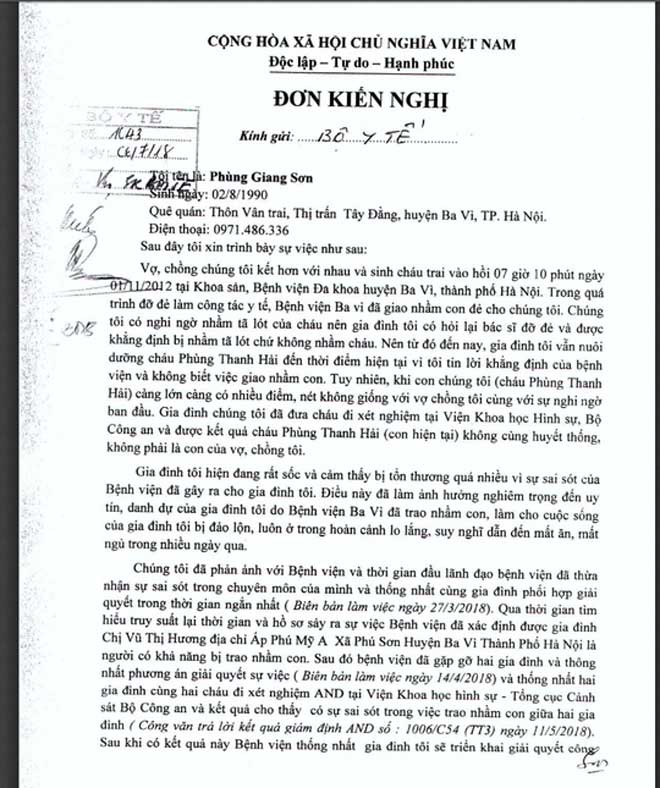 CỘNG HÒA XÃ HỘI CHỦ NGHĨA VIỆT NAM
Độc lập – Tự do – Hạnh phúc
ĐƠN KIẾN NGHỊ
BỘ Y TẾ
Kính gửi: BỘ Y TẾ
Tôi tên là: Phùng Giang Sơn
Sinh ngày: 02/8/1990
Quê quán: Thôn Vân trai, Thị trấn Tây Đằng, huyện Ba Vì, TP. Hà Nội.
Điện thoại: 0971.486.336
Sau đây tôi xin trình bày sự việc như sau:
Vợ, chồng chúng tôi kết hơn với nhau và sinh cháu trai vào hồi 07 giờ 10 phút ngày
01/11/2012 tại Khoa sản, Bệnh viện Đa khoa huyện Ba Vì, thành phố Hà Nội. Trong quá
trình đỡ đẻ làm công tác y tế, Bệnh viện Ba vì đã giao nhầm con đẻ cho chúng tôi. Chúng
tôi có nghi ngờ nhầm tã lót của cháu nên gia đình tôi có hỏi lại bác sĩ đỡ đẻ và được
khẳng định bị nhầm tã lót chứ không nhầm cháu. Nên từ đó đến nay, gia đình tôi vẫn nuôi
dưỡng cháu Phùng Thanh Hải đến thời điểm hiện tại vì tôi tin lời khẳng định của bệnh
viện và không biết việc giao nhầm con. Tuy nhiên, khi con chúng tôi (cháu Phùng Thanh
Hải) càng lớn càng có nhiều điểm, nét không giống với vợ chồng tôi cùng với sự nghi ngờ
ban đầu. Gia đình chúng tôi đã đưa cháu đi xét nghiệm tại Viện Khoa học Hình sự, Bộ
Công an và được kết quả cháu Phùng Thanh Hải (con hiện tại) không cùng huyết thống,
không phải là con của vợ, chồng tôi.
Gia đình tôi hiện đang rất sốc và cảm thấy bị tổn thương quá nhiều vì sự sai sót của
Bệnh viện đã gây ra cho gia đình tôi. Điều này đã làm ảnh hưởng nghiêm trọng đến uy
tín, danh dự của gia đình tôi do Bệnh viện Ba Vì đã trao nhầm con, làm cho cuộc sống
của gia đình tôi bị đảo lộn, luôn ở trong hoàn cảnh lo lắng, suy nghĩ dẫn đến mất ăn, mất
ngủ trong nhiều ngày qua.
Chúng tôi đã phản ánh với Bệnh viện và thời gian đầu lãnh đạo bệnh viện đã thừa
nhận sự sai sót trong chuyên môn của mình và thống nhất cùng gia đình phối hợp giải
quyết trong thời gian ngắn nhất ( Biên bản làm việc ngày 27/3/2018). Qua thời gian tìm
hiểu truy suất lại thời gian và hồ sơ sảy ra sự việc Bệnh viện đã xác định được gia đình
Chị Vũ Thị Hương địa chỉ Áp Phú Mỹ A Xã Phú Sơn Huyện Ba Vì Thành Phố Hà Nội là
người có khả năng bị trao nhầm con. Sau đó bệnh viện đã gặp gỡ hai gia đình và thông
nhất phương án giải quyết sự việc ( Biên bản làm việc ngày 14/4/2018) và thống nhất hai
gia đình cùng hai cháu đi xét nghiệm AND tại Viện Khoa học hình sự - Tổng cục Cảnh
sát Bộ Công an và kết quả cho thấy có sự sai sót trong việc trao nhầm con giữa hai gia
đình ( Công văn trả lời kết quả giám định AND số : 1006/C54 (TT3) ngày 11/5/2018).
Sau khi có kết quả này Bệnh viện thống nhất gia đình tôi sẽ triển khai giải quyết công